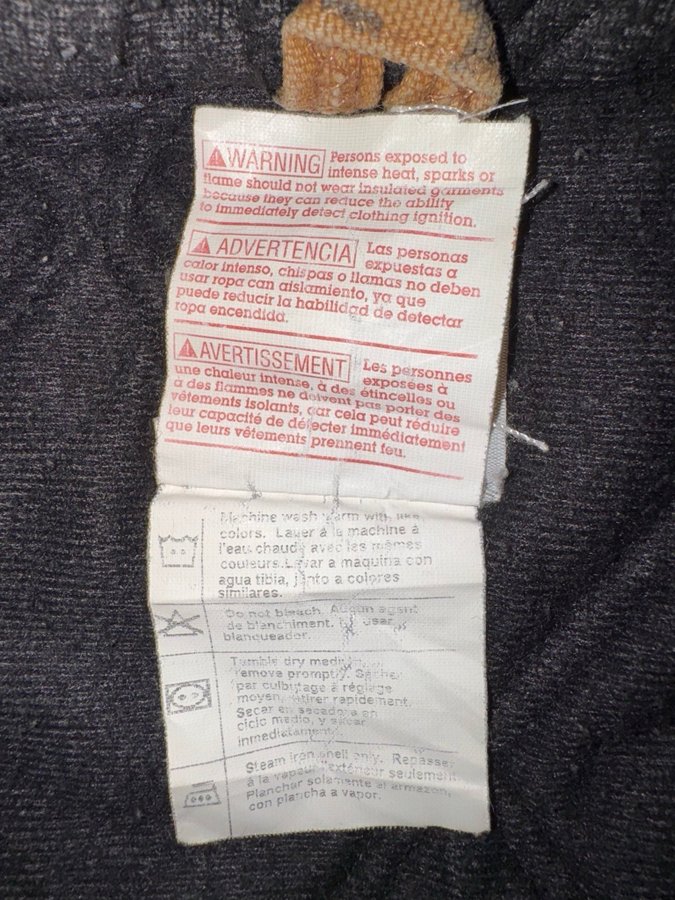 WARNING Persons exposed to
intense heat, sparks or
flame should not wear insulated garments
because they can reduce the ability
to immediately detect clothing ignition.
ADVERTENCIA Las personas
expuestas a
calor intenso, chispas o llamas no deben
usar ropa can aislamiento, ya que
puede reducir la habilidad de detectar
ropa encendida.
AVERTISSEMENT Les personnes
exposées à
une chaleur intense, à des étincelles ou
à des flammes ne doivent pas porter des
vêtements isolants, car cela peut réduire
leur capacité de détecter immédiatement
que leurs vêtements prennent feu.
Machine wash warm with like
colors. Laver à la machine à
l'eau chaude avec les mêmes
couleurs. Lavar a maquina con
agua tibia, junto a colores
similares.
Do not bleach. Aucun agent
de blanchiment. No usar
blanqueador.
Tumble dry
remove promptly. Sécher
par culbutage à réglage
moyen, retirer rapidement.
Secar en secadora en
ciclo medio, y sacar
inmediatament
Steam iron shell only. Repasser
à la vapeur l'extérieur seulement
Planchar solamente el armazon,
con plancha a vapor.